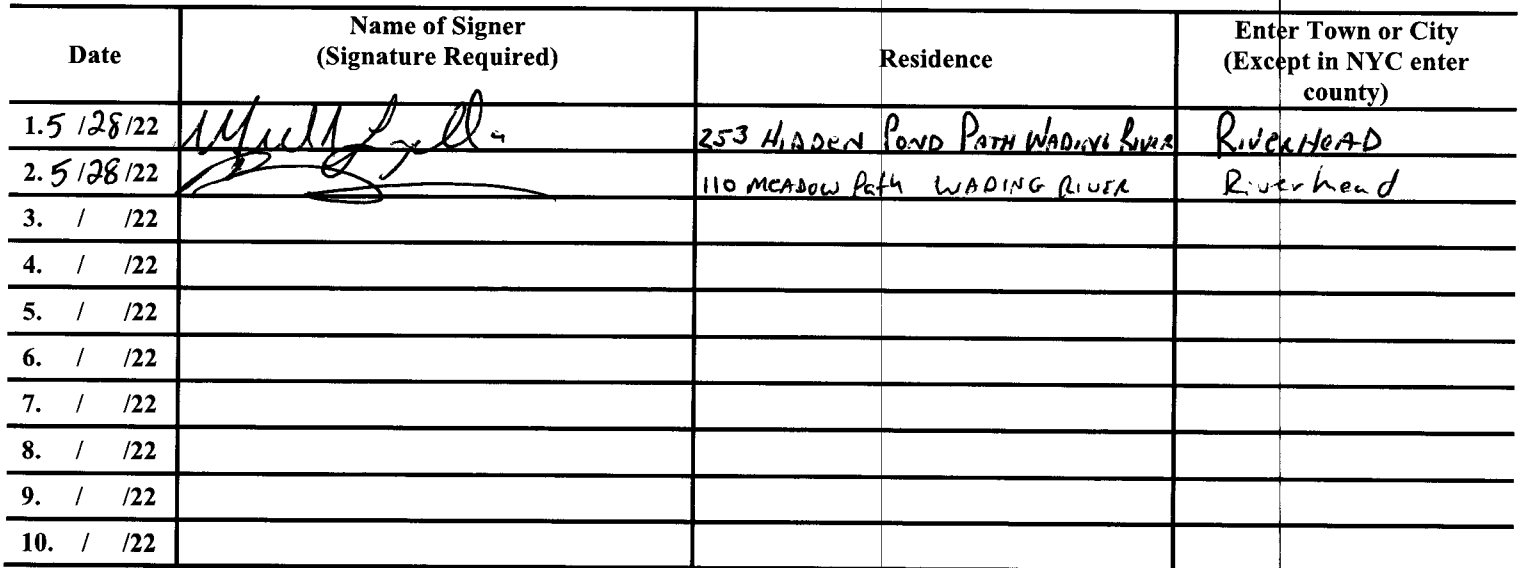 Date Name of Signer (Signature Required) Residence Enter Town or City (Except in NYC enter county)
1. 5 /28/22 253 HIDDEN POND PATH WADING RIVER RIVERHEAD
2. 5 /28/22 110 MEADOW Path WADING RIVER Riverhead
3. / /22
4. / /22
5. / /22
6. / /22
7. / /22
8. / /22
9. / /22
10. / /22